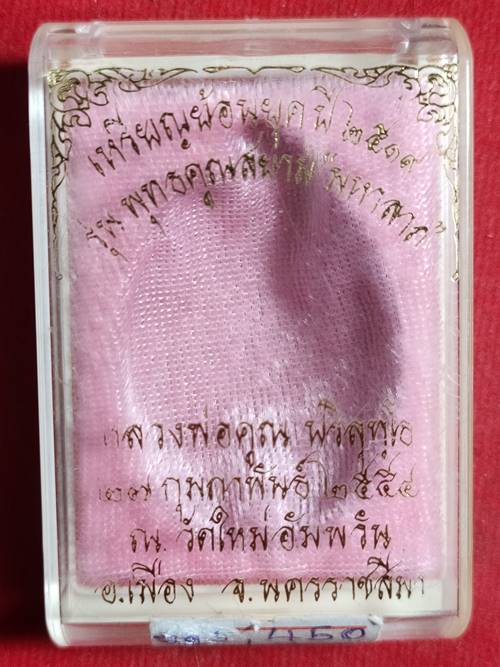 เหรียญย้อนยุค ปี ๒๕๑๙
รุ่น พุทธคุณสยาม "มหาลาภ"
หลวงพ่อคูณ ปริสุทฺโธ
๒๗ กุมภาพันธ์ ๒๕๕๔
ณ. วัดใหม่อัมพวัน
อ.เมือง จ.นครราชสีมา
450